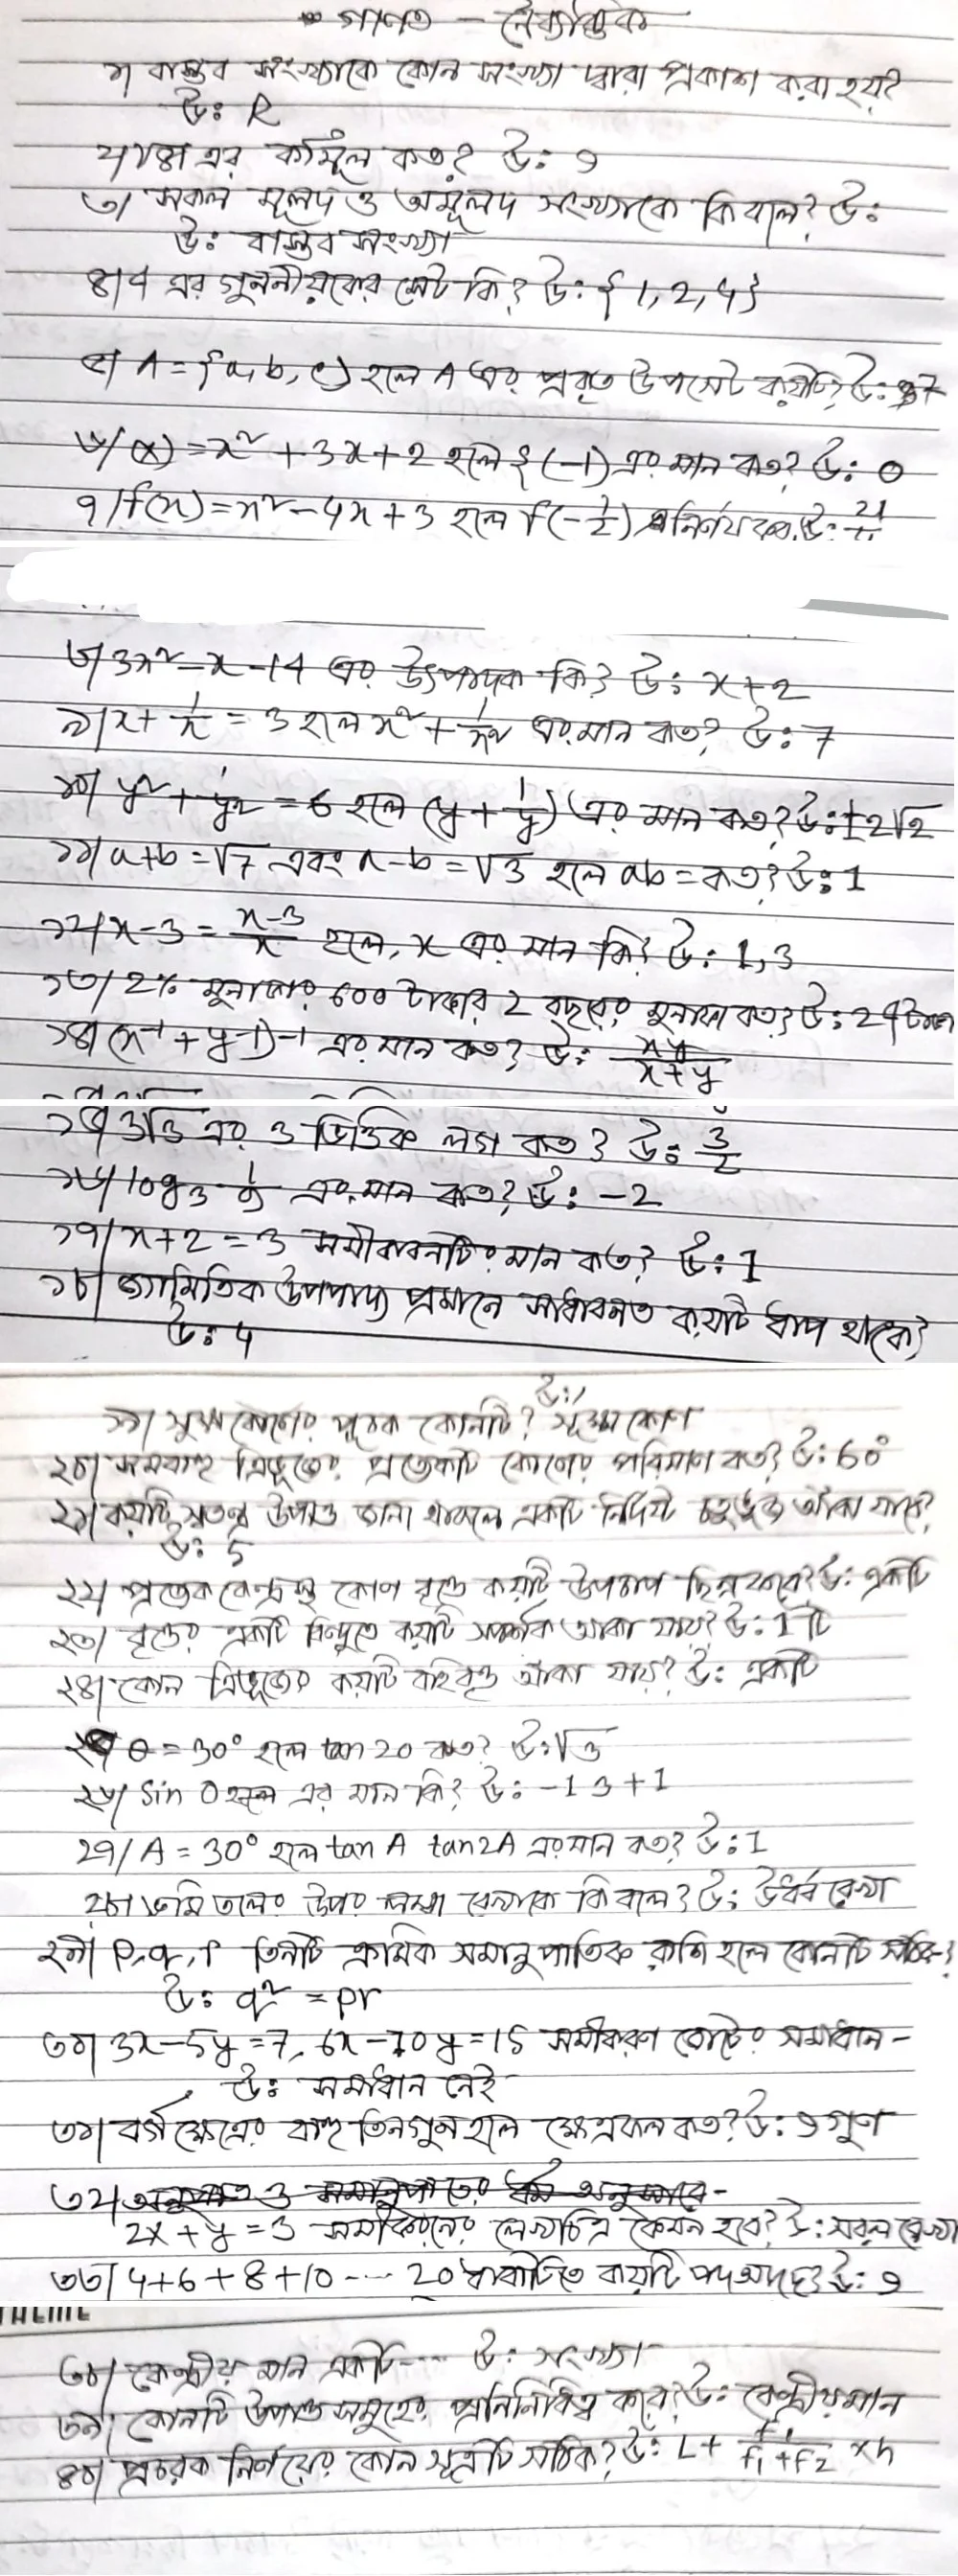 গণিত - নৈর্ব্যক্তিক
১। বাস্তব সংখ্যাকে কোন সংখ্যা দ্বারা প্রকাশ করা হয়?
উঃ R
২। √৮১ এর বর্গমূল কত? উঃ ৯
৩। সকল মূলদ ও অমূলদ সংখ্যাকে কি বলে? উঃ
উঃ বাস্তব সংখ্যা
৪। 4 এর গুননীয়কের সেট কি? উঃ {1, 2, 4}
৫। A = {a, b, c} হলে A এর প্রকৃত উপসেট কয়টি? উঃ 7
৬। (x) = x² + 3x + 2 হলে f(-1) এর মান কত? উঃ 0
৭। f(x) = x² - 4x + 3 হলে f(-1/2) নির্ণয় কর. উঃ 21
৮। 3x² - x - 14 এর উৎপাদক কি? উঃ x + 2
৯। x + 1/x = 3 হলে x² + 1/x² এর মান কত? উঃ 7
১০। y² + 1/y² = 6 হলে (y + 1/y) এর মান কত? উঃ ±2√2
১১। a+b = √7 এবং a-b = √3 হলে ab = কত? উঃ 1
১২। x-3 = x-3/x হলে, x এর মান কি? উঃ 1, 3
১৩। 2% মুনাফায় 600 টাকার 2 বছরের মুনাফা কত? উঃ 24 টাকা
১৪। (x⁻¹ + y⁻¹)⁻¹ এর মান কত? উঃ xy/x+y
১৫। 3√3 এর 3 ভিত্তিক লগ কত? উঃ 3/2
১৬। log₃ 1/9 এর মান কত? উঃ -2
১৭। x + 2 = 3 সমীকরনটির মান কত? উঃ 1
১৮। জ্যামিতিক উপপাদ্য প্রমানে সাধারনত কয়টি ধাপ থাকে?
উঃ 4
১৯। সূক্ষ্মকোণের পূরক কোনটি? উঃ সূক্ষ্মকোণ
২০। সমবাহু ত্রিভুজের প্রত্যেকটি কোণের পরিমাণ কত? উঃ 60°
২১। কয়টি স্বতন্ত্র উপাত্ত জানা থাকলে একটি নির্দিষ্ট চতুর্ভুজ আঁকা যাবে?
উঃ 5
২২। প্রত্যেক কেন্দ্রস্থ কোণ বৃত্তে কয়টি উপচাপ ছিন্ন করে? উঃ একটি
২৩। বৃত্তের একটি বিন্দুতে কয়টি স্পর্শক আকা যায়? উঃ 1 টি
২৪। কোন ত্রিভুজের কয়টি বহিবৃত্ত আঁকা যায়? উঃ একটি
২৫। θ = 30° হলে tan 2θ কত? উঃ √3
২৬। Sin θ হলে এর মান কি? উঃ -1 ও +1
২৭। A = 30° হলে tan A tan2A এর মান কত? উঃ 1
২৮। ভূমি তলের উপর লম্ব রেখাকে কি বলে? উঃ উর্ধ্ব রেখা
২৯। p, q, r তিনটি ক্রমিক সমানুপাতিক রাশি হলে কোনটি সঠিক?
উঃ q² = pr
৩০। 3x-5y = 7, 6x-10y = 15 সমীকরণ জোটের সমাধান -
উঃ সমাধান নেই
৩১। বর্গক্ষেত্রের বাহু তিনগুন হলে ক্ষেত্রফল কত? উঃ ৯ গুণ
৩২। অনুপাত ও সমানুপাতের ধর্ম অনুসারে -
2x + y = 3 সমীকরনের লেখচিত্র কেমন হবে? উঃ সরল রেখা
৩৩। 4+6+8+10 ---- 20 ধারাটিতে কয়টি পদ আছে? উঃ ৯
৩৮। কেন্দ্রীয় মান একটি---- উঃ সংখ্যা
৩৯। কোনটি উপাত্ত সমূহের প্রনিনিধিত্ব করে? উঃ কেন্দ্রীয় মান
৪০। প্রচরক নির্ণয়ের কোন সূত্রটি সঠিক? উঃ L + f₁/f₁+f₂ ×h